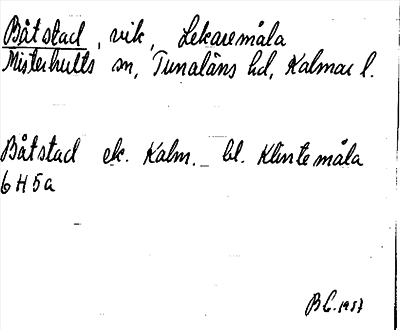 Båtstad, vik, Lekaremåla
Misterhults sn, Tunaläns hd, Kalmar l.
Båtstad ek. Kalm. bl. Klintemåla
6 H 5 a